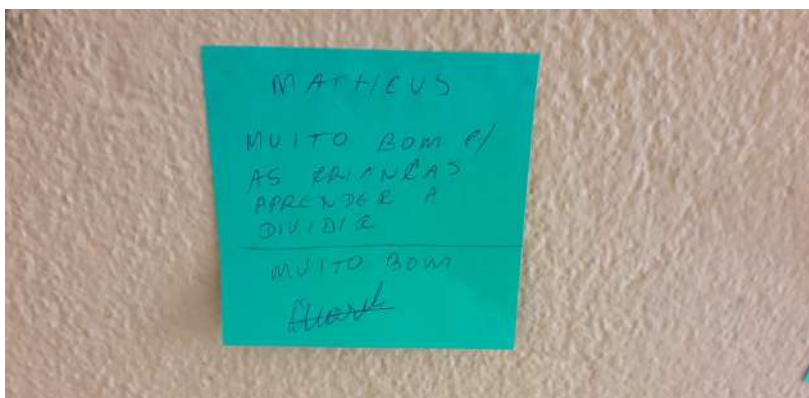 MATHEUS
MUITO BOM P/
AS CRIANÇAS
APRENDER A
DIVIDIR
MUITO BOM